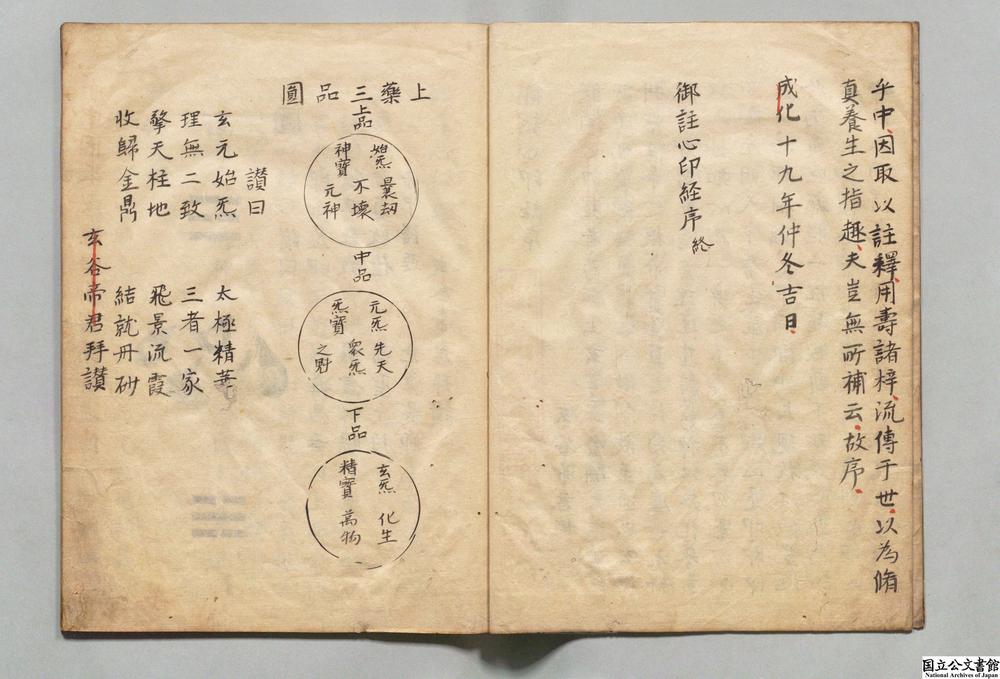 乎中因取以註釋用壽諸梓流傳于世以為脩
真養生之指趣夫豈無所補云故序
成化十九年仲冬吉日
御註心印経序終
上藥三品圓
上品
始炁 曩劫
不壞
神寶 元神
中品
元炁 先天
衆炁
炁寶 之尉
下品
玄炁 化生
精寶 萬物
讃曰
玄元始炁 太極精華
理無二致 三者一家
擎天柱地 飛景流霞
收歸金鼎 結就丹砂
玄谷帝君拜讃
国立公文書館
National Archives of Japan